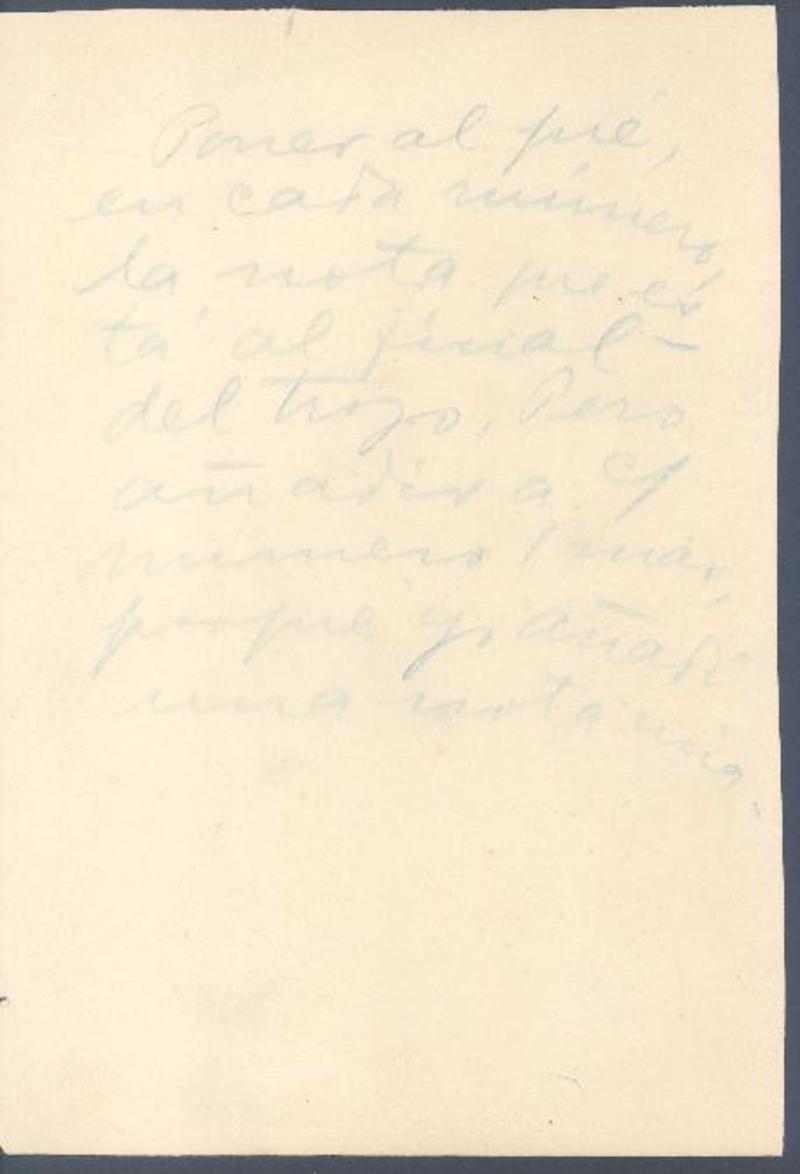 Poner al pié,
en cada número
la nota que es
tá al final—
del trozo. Pero
añadir a c/
número 1 mas,
porque yo añadí
una nota mia.